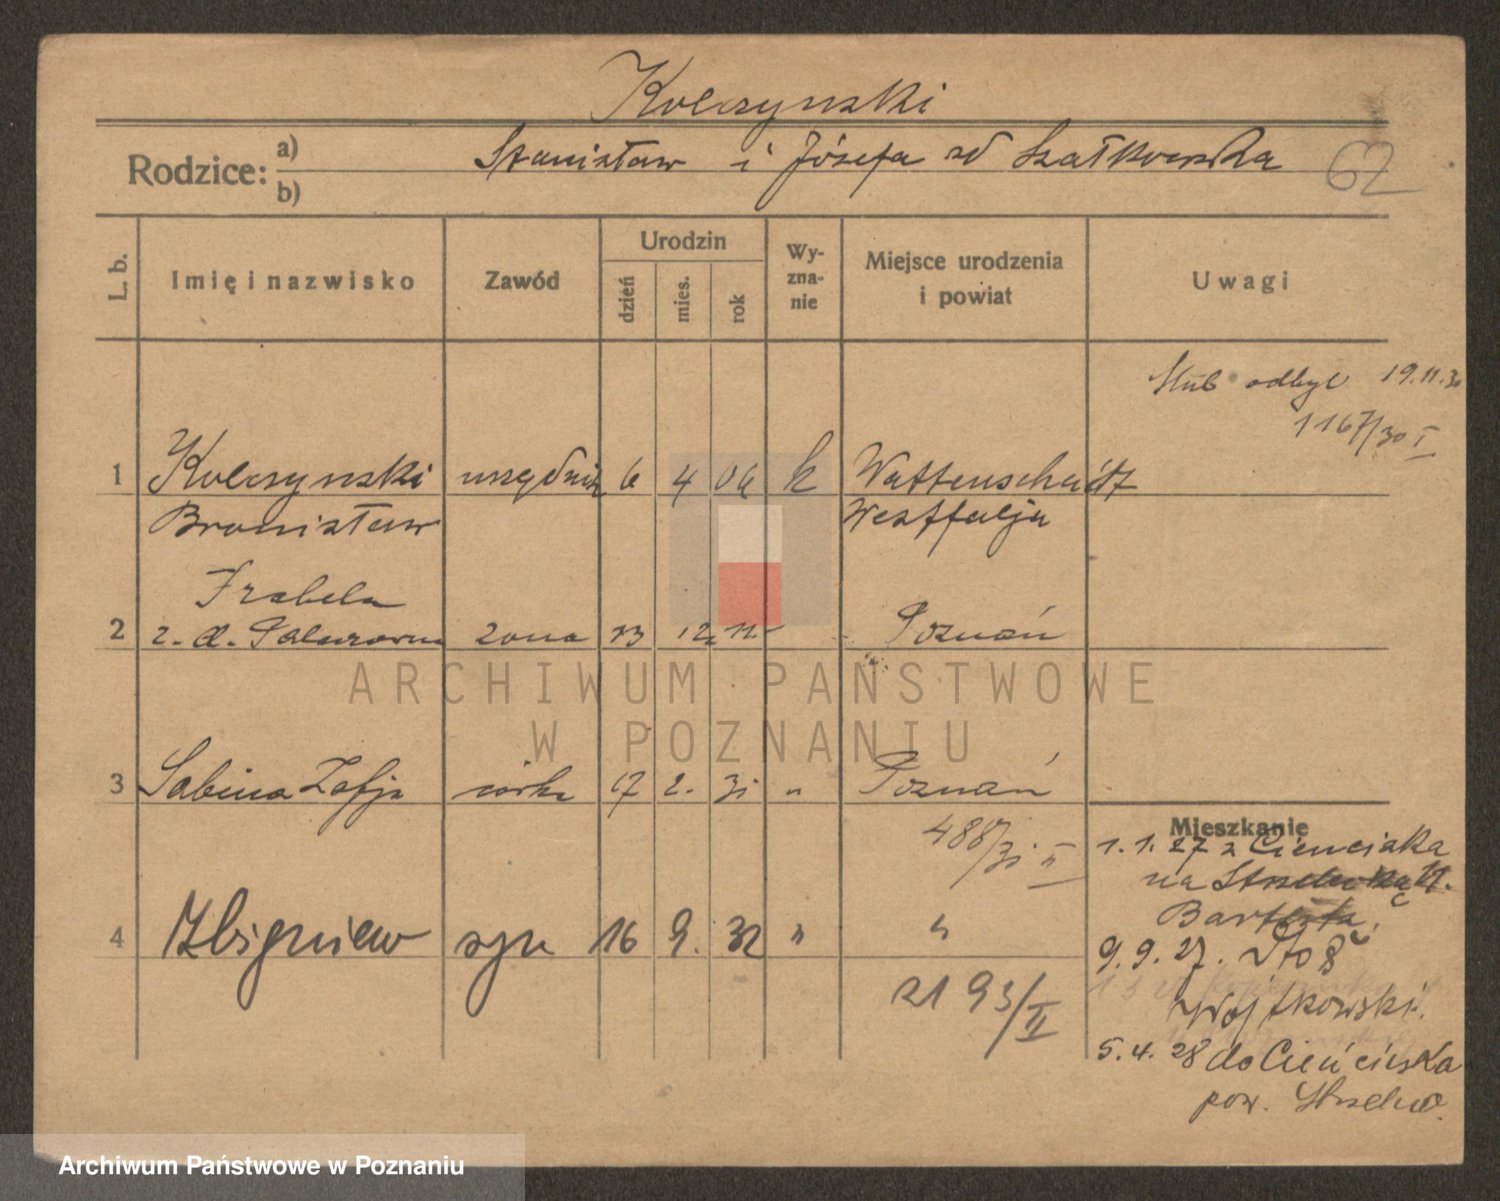 Kolczynski
Rodzice: a) Stanisław i Józefa zd Szałkowska
b)
62
L. b. Imię i nazwisko Zawód Urodzin dzień mies. rok Wyznanie Miejsce urodzenia i powiat Uwagi
Ślub odbył 19.11.30
1167/30 I
1 Kolczynski urzędnik 6 4 06 k Wattenscheidt
Bronisław Westfalja
Izabela
2 z. d. żona 13 12 11 Poznań
ARCHIWUM PAŃSTWOWE
W POZNANIU
3 Sabina Zofja córka 17 2. 31 " Poznań
488/31 II
Mieszkanie
1. 1. 27 z Cienciska
na
4 Zbigniew syn 16 9. 32 " "
9. 9. 27.
2193/II
Wojtkowski.
5. 4. 28 do Cienciska
pow. Strzelno.
Archiwum Państwowe w Poznaniu